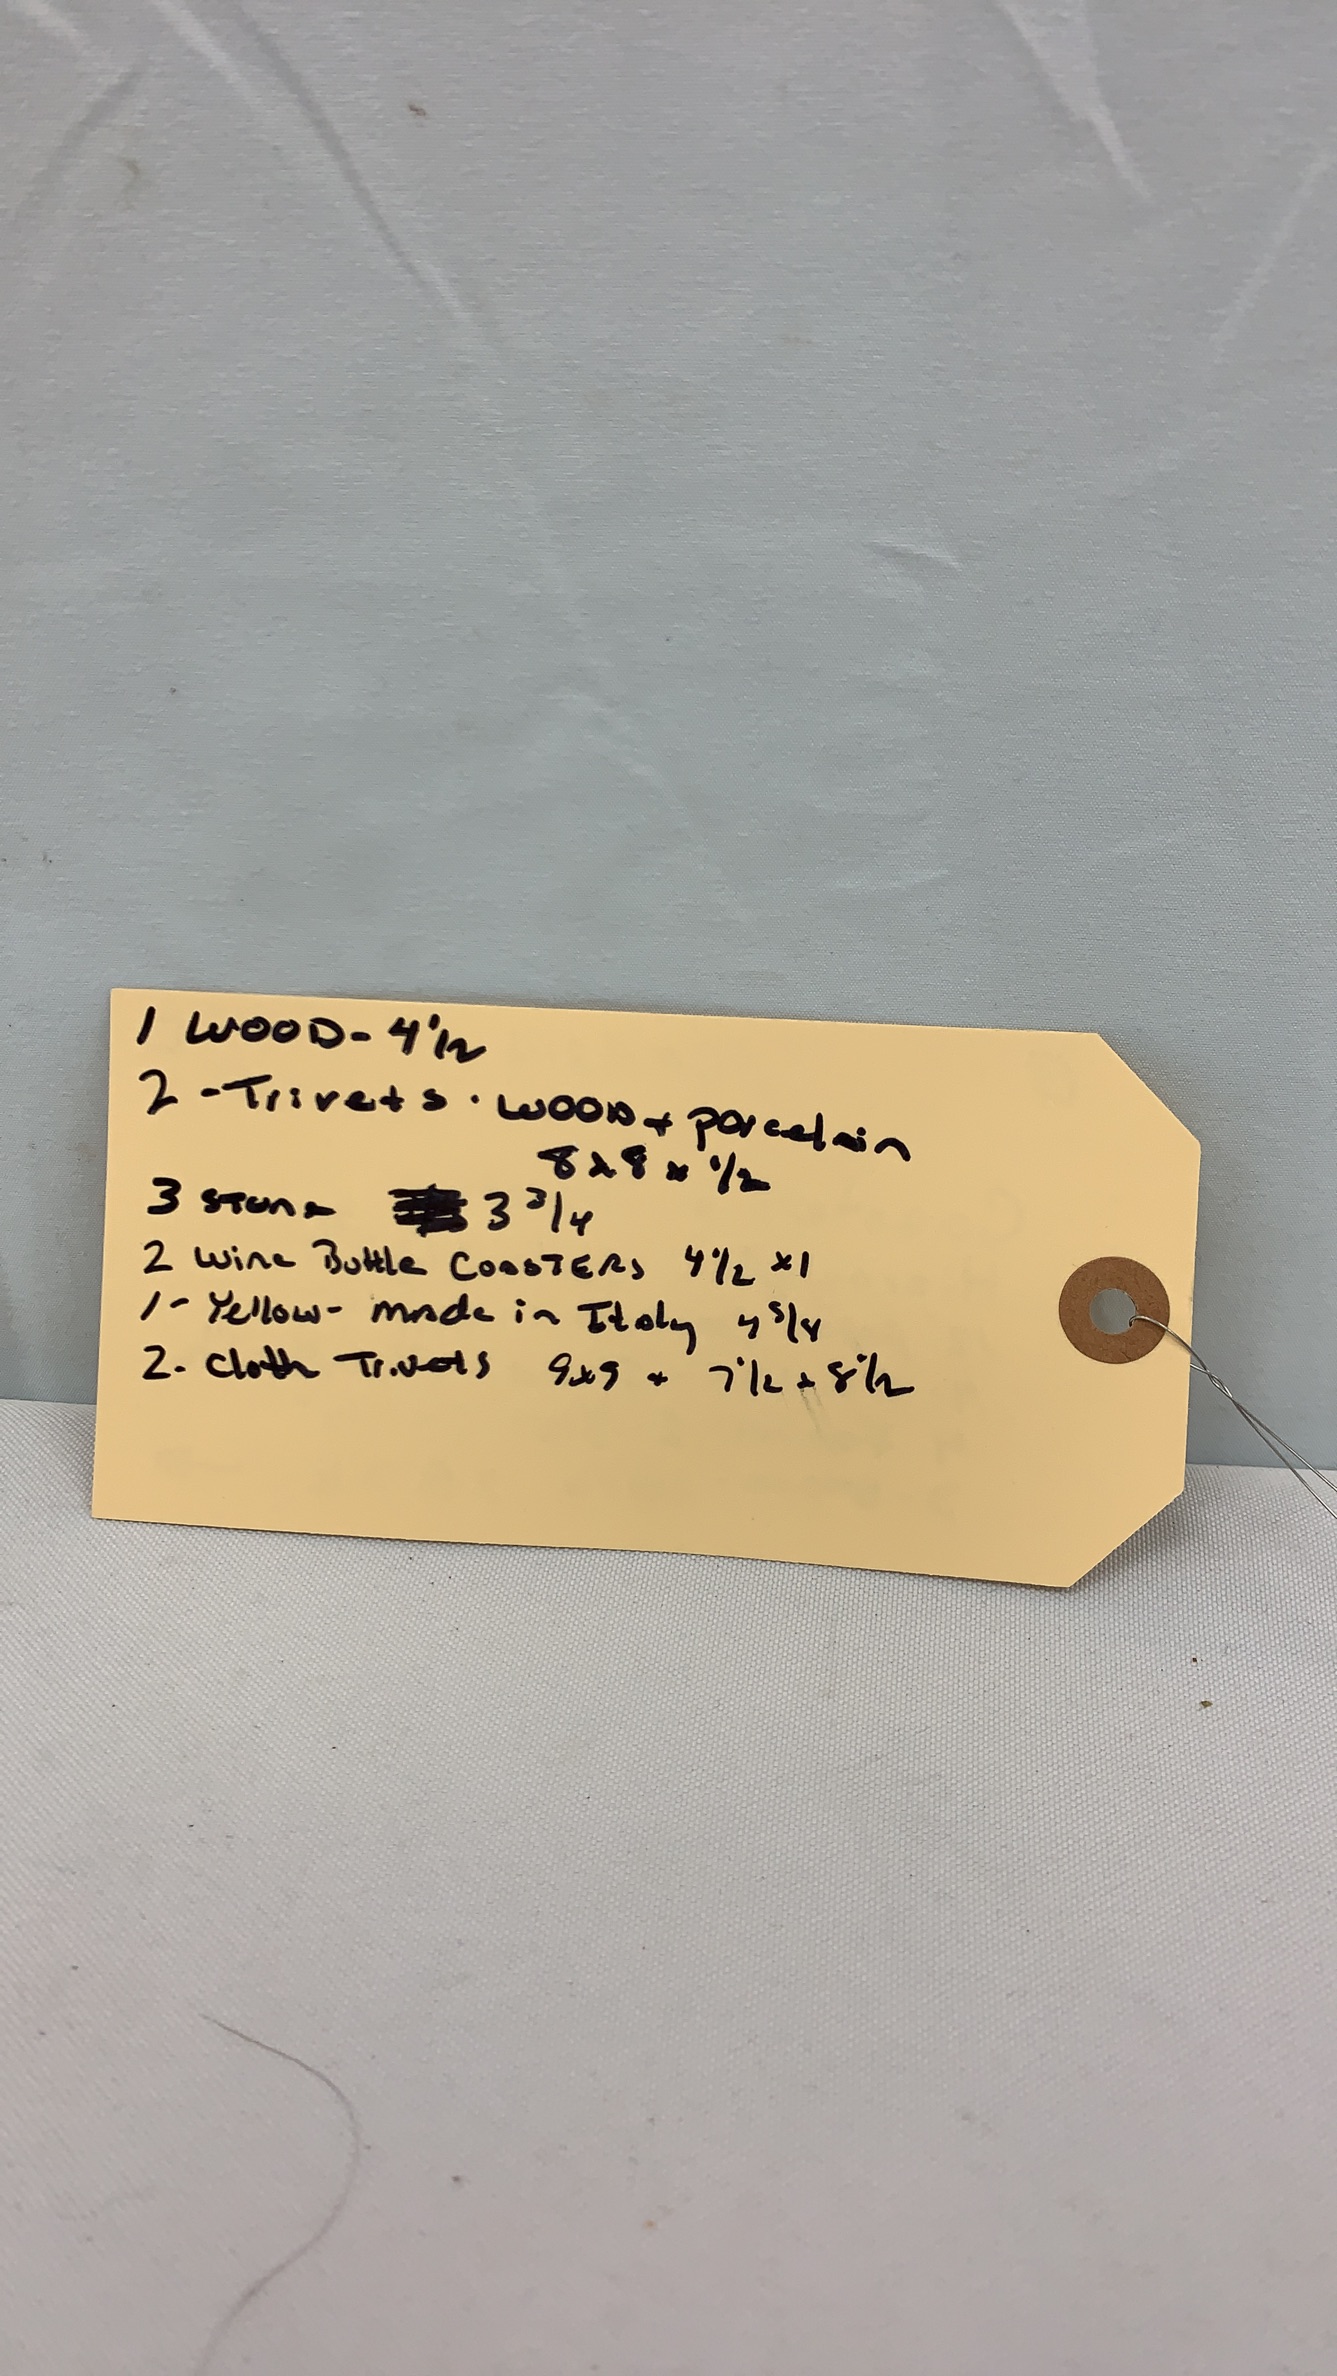 1 WOOD- 4 1/2
2 -Trivets. WOOD + porcelain
8 x 8 x 1/2
3 STONE 3 3/4
2 Wine Bottle COASTERS 4 1/2 x 1
1- Yellow- made in Italy 4 5/8
2. Cloth Trivets 9x9 + 7 1/2 x 8 1/2